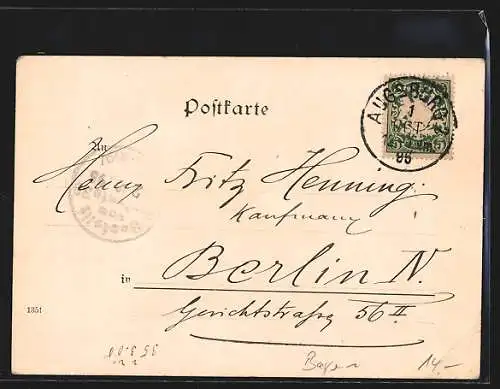 Postkarte
AUGSBURG 2
1
OCT.
96
5 5
An
Herrn Fritz Henning
Kaufmann
in Berlin N.
Gerichtstraße 56 II
1351
Bayern
14.-